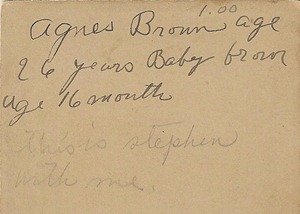 1.00
Agnes Brown age
26 years Baby brown
age 16 month
this is stephen
with me.